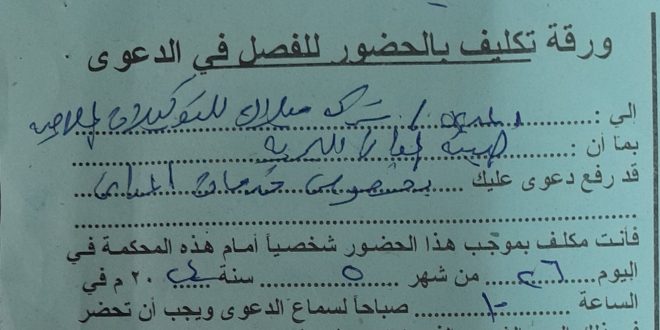 ورقة تكليف بالحضور للفصل في الدعوى
إلي : السادة / شركة ميلاك للتوكيلات الملاحية
بما أن : هيئة الموانئ البحرية
قد رفع دعوى عليك بخصوص خدمات
فأنت مكلف بموجب هذا الحضور شخصياً أمام هذه المحكمة في
اليوم ٢٦ من شهر ٥ سنة ٢٠٢٤ م في
الساعة ١٠ صباحاً لسماع الدعوى ويجب أن تحضر